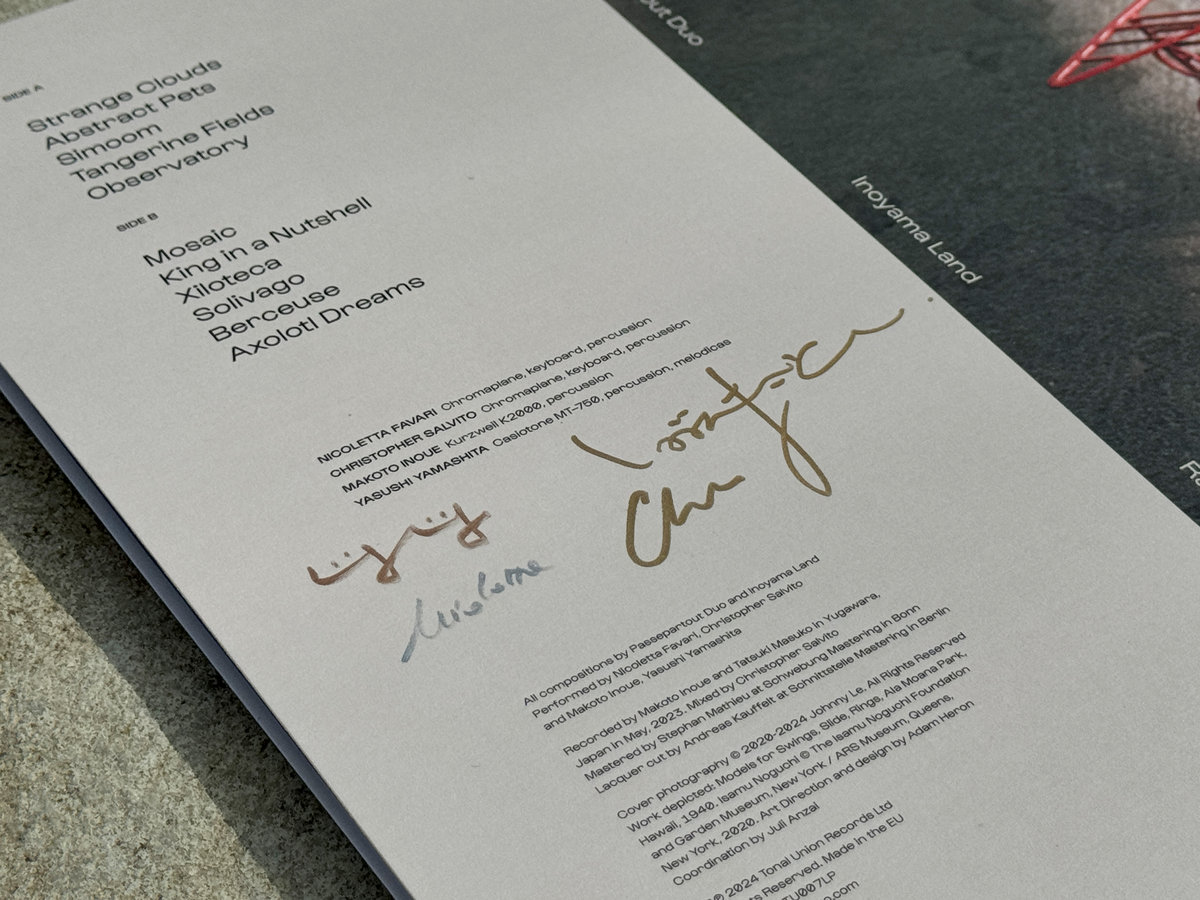 SIDE A
Strange Clouds
Abstract Pets
Simoom
Tangerine Fields
Observatory
SIDE B
Mosaic
King in a Nutshell
Xiloteca
Solivago
Berceuse
Axolotl Dreams
NICOLETTA FAVARI Chromaplane, keyboard, percussion
CHRISTOPHER SALVITO Chromaplane, keyboard, percussion
MAKOTO INOUE Kurzweil K2000, percussion
YASUSHI YAMASHITA Casiotone MT-750, percussion, melodicas
All compositions by Passepartout Duo and Inoyama Land
Performed by Nicoletta Favari, Christopher Salvito
and Makoto Inoue, Yasushi Yamashita
Recorded by Makoto Inoue and Tatsuki Masuko in Yugawara,
Japan in May, 2023. Mixed by Christopher Salvito
Mastered by Stephan Mathieu at Schwebung Mastering in Bonn
Lacquer cut by Andreas Kauffelt at Schnittstelle Mastering in Berlin
Cover photography © 2020-2024 Johnny Le. All Rights Reserved
Work depicted: Models for Swings, Slide, Rings, Ala Moana Park,
Hawaii, 1940. Isamu Noguchi © The Isamu Noguchi Foundation
and Garden Museum, New York / ARS Museum, Queens,
New York, 2020. Art Direction and design by Adam Heron
Coordination by Juli Anzai
℗© 2024 Tonal Union Records Ltd
Rights Reserved. Made in the EU
TU007LP
.com
out Duo
Inoyama Land